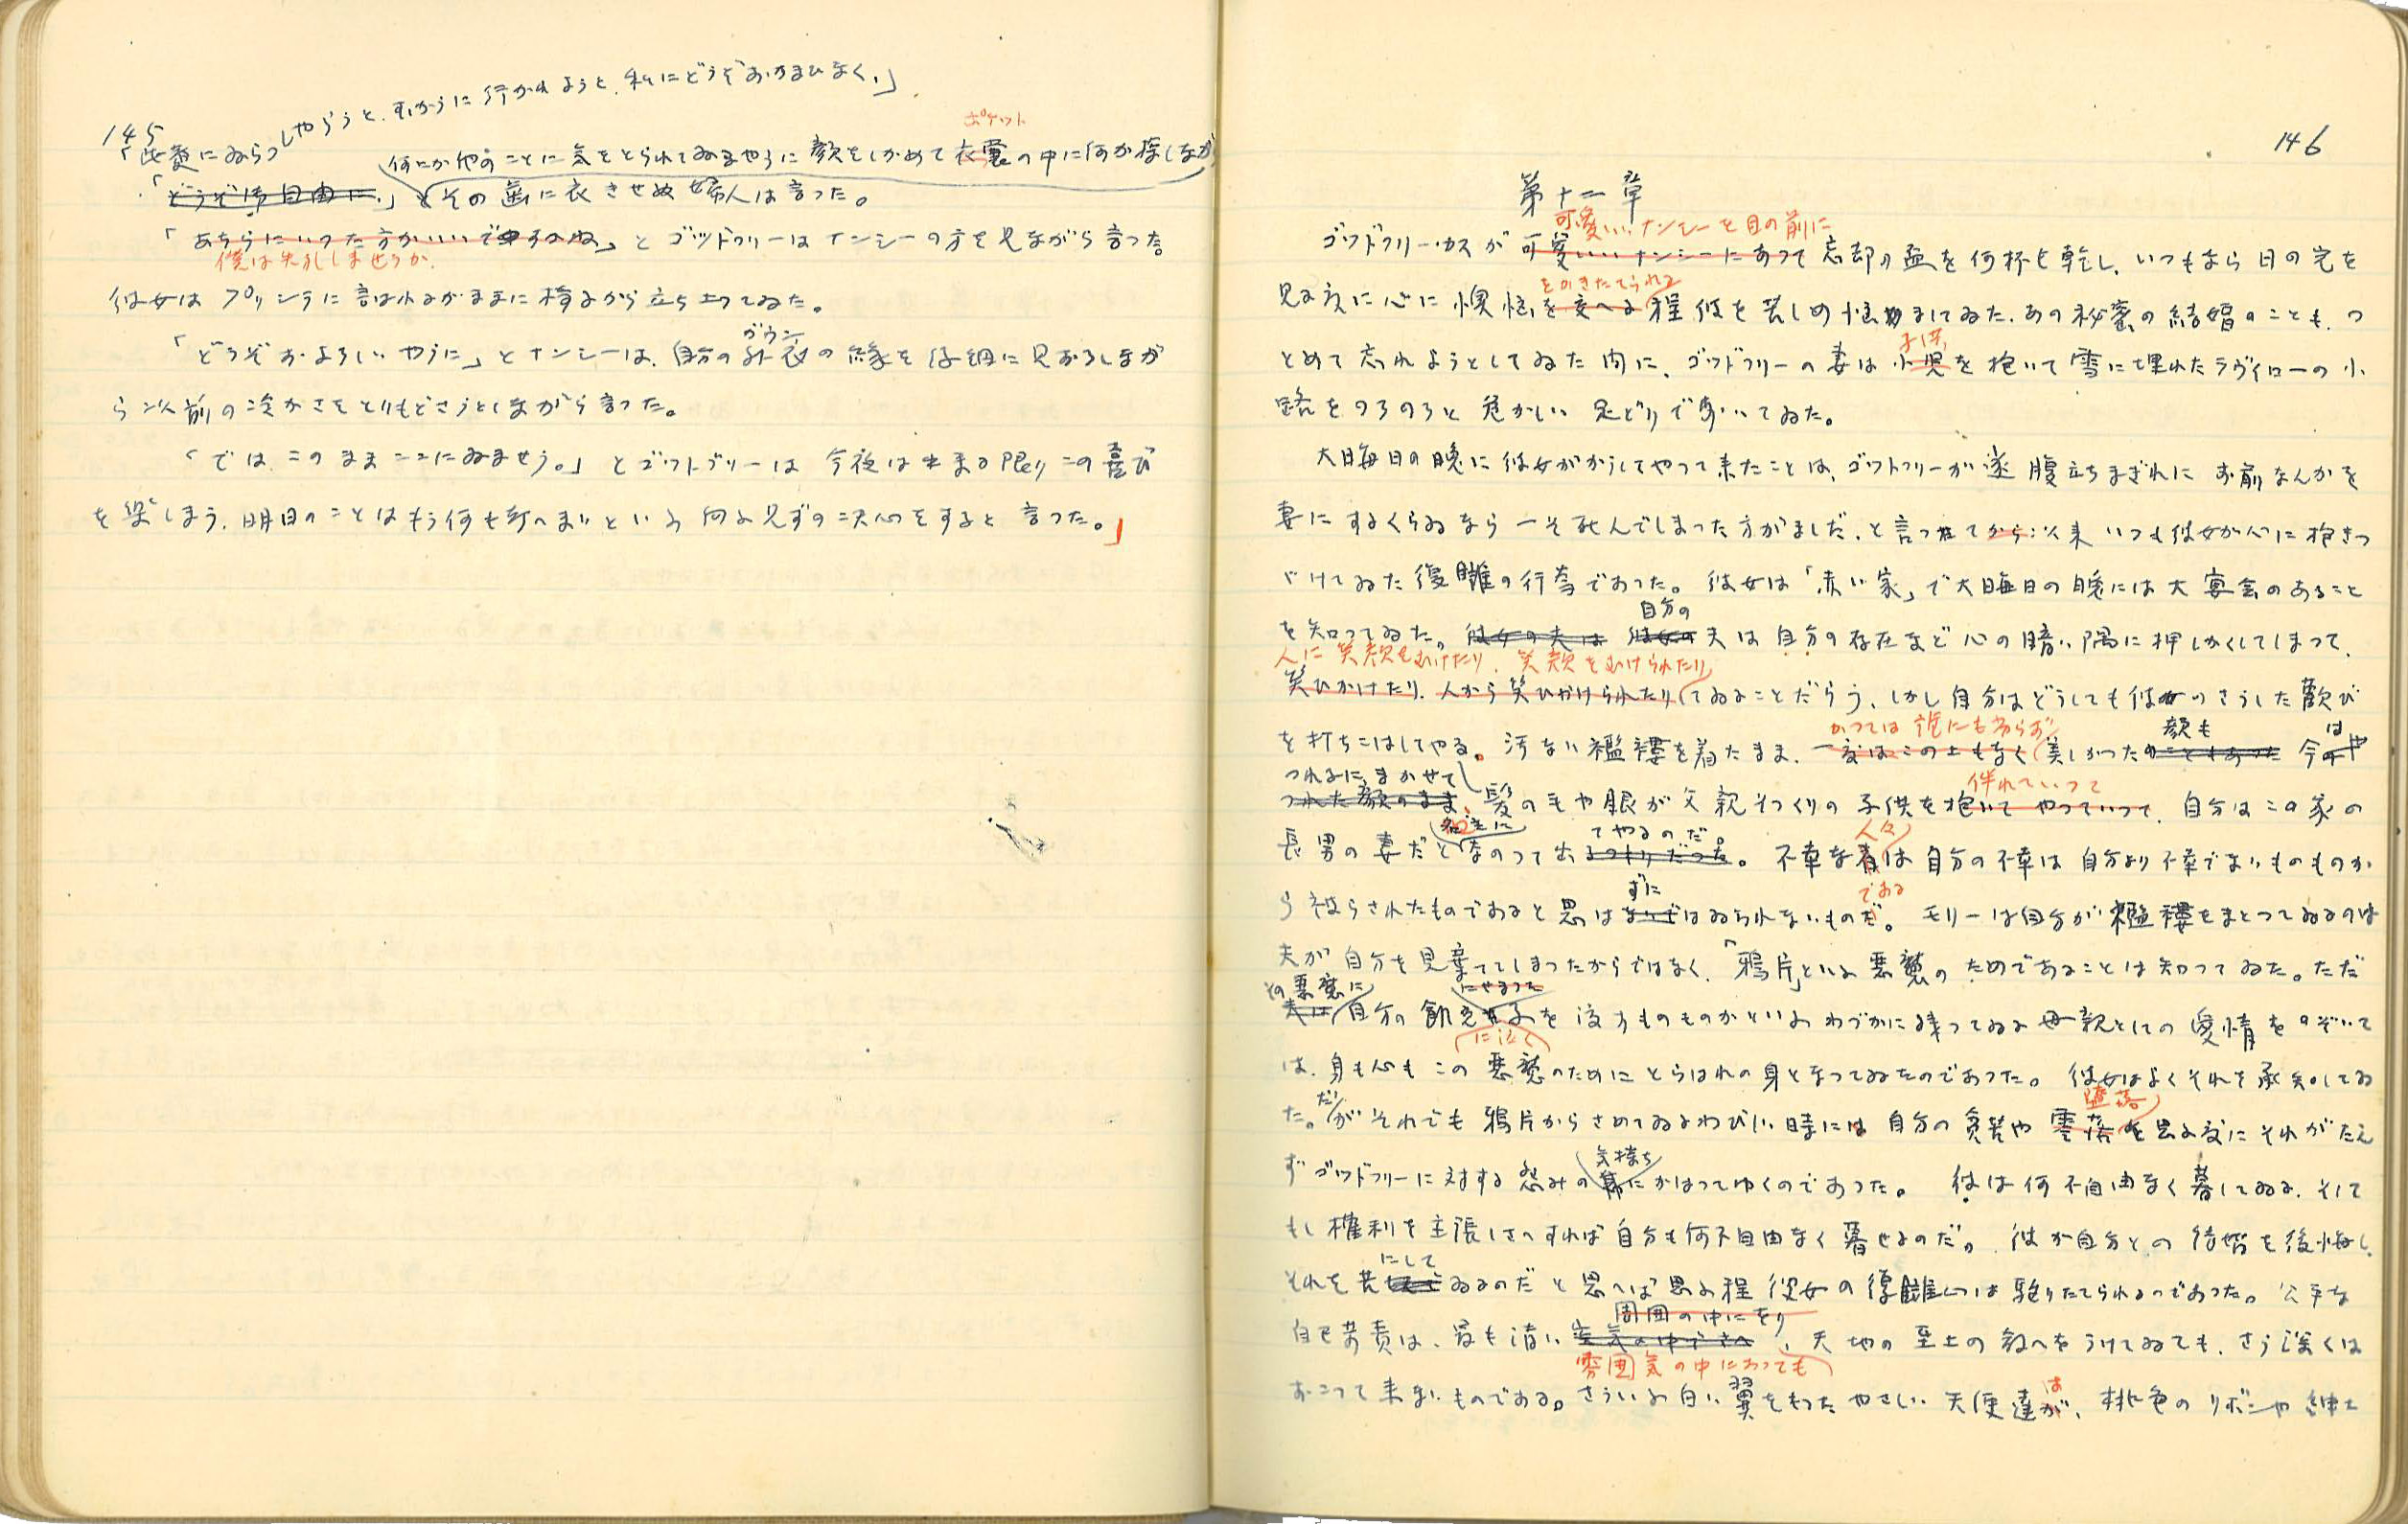 145
「此処にゐらつしやらうと、むかうに行かれようと、私にどうぞおかまひなく。」
何にか他のことに気をとられてゐるやうに顔をしかめて衣嚢の中に何か探しなが
ポケット
「どうぞ御自由に。」とその歯に衣きせぬ婦人は言つた。
「あちらにいつた方がいいですかね」とゴッドフリーはナンシーの方を見ながら言つた。
僕は失礼しませうか。
彼女はプリシラに言はれるがままに椅子から立ち上つてゐた。
ガウン
「どうぞおよろしいやうに」とナンシーは、自分の外衣の縁を仔細に見おろしなが
ら以前の冷かさをとりもどさうとしながら言つた。
「では、このままここにゐませう。」とゴッドフリーは今夜は出来る限りこの喜び
を楽しまう、明日のことはもう何も考へまいといふ向ふ見ずの決心をすると言つた。」
146
第十二章
可愛いいナンシーを目の前に
ゴッドフリー・カスが可愛いいナンシーにあつて忘却の盃を何杯も乾し、いつもなら日の光を
をかきたてられる
見る度に心に懊悩を覚へる程彼を苦しめ悩ましてゐた、あの秘密の結婚のことも、つ
子供
とめて忘れようとしてゐた内に、ゴッドフリーの妻は小児を抱いて雪に埋れたラヴイローの小
路をのろのろと危かしい足どりで歩いてゐた。
大晦日の晩に彼女がかうしてやつて来たことは、ゴッドフリーが遂腹立ちまぎれにお前なんかを
妻にするくらゐなら一そ死んでしまつた方がましだ、と言つてから以来いつも彼女が心に抱きつ
づけてゐた復讐の行為であつた。彼女は「赤い家」で大晦日の晩には大宴会のあること
自分の
を知つてゐた。彼女の夫は彼女の夫は自分の存在など心の暗い隅に押しかくしてしまつて、
人に笑顔をむけたり、笑顔をむけられたり
笑ひかけたり、人から笑ひかけられたりしてゐることだらう、しかし自分はどうしても彼のさうした歓び
かつては誰にも劣らず 顔も は
を打ちこはしてやる。汚ない襤褸を着たまま、一度はこの上もなく美しかつたこともあつた今のや
つれるにまかせて 伴れていつて
つれた顔のまま、髪の毛や眼が父親そつくりの子供を抱いてやつていつて、自分はこの家の
てやるのだ。 人々
長男の妻だとなのつて出るつもりだつた。不幸な者は自分の不幸は自分より不幸でないものものか
ずに である
ら被らされたものであると思はないではゐられないものだ。モリーは自分が襤褸をまとつてゐるのは
夫が自分を見棄ててしまつたからではなく、「鴉片」といふ悪魔のためであることは知つてゐた。ただ
その悪魔に
夫は自分の飢えた子を渡すものものかといふわづかに残つてゐる母親としての愛情をのぞいて
に泣く
は、身も心もこの悪魔のためにとらはれの身となつてゐたのであつた。彼女はよくそれを承知してゐ
だ 堕落
た。がそれでも鴉片からさめてゐるわびしい時には自分の貧苦や零落を思ふ度にそれがたえ
気持ち
ずゴッドフリーに対する怨みのにかはつてゆくのであつた。彼は何不自由なく暮してゐる、そして
もし権利を主張しさへすれば自分も何不自由なく暮せるのだ。彼が自分との結婚を後悔し、
にして
それを苦ゐるのだと思へば思ふ程彼女の復讐心は駆りたてられるのであつた。公平な
周囲の中にをり
自己苛責は、最も清い空気の中でさへ、天地の至上の教へをうけてゐても、さう深くは
雰囲気の中にあつても
おこつて来ないものである。さういふ白い翼をもつたやさしい天使達が、桃色のリボンや紳士
は